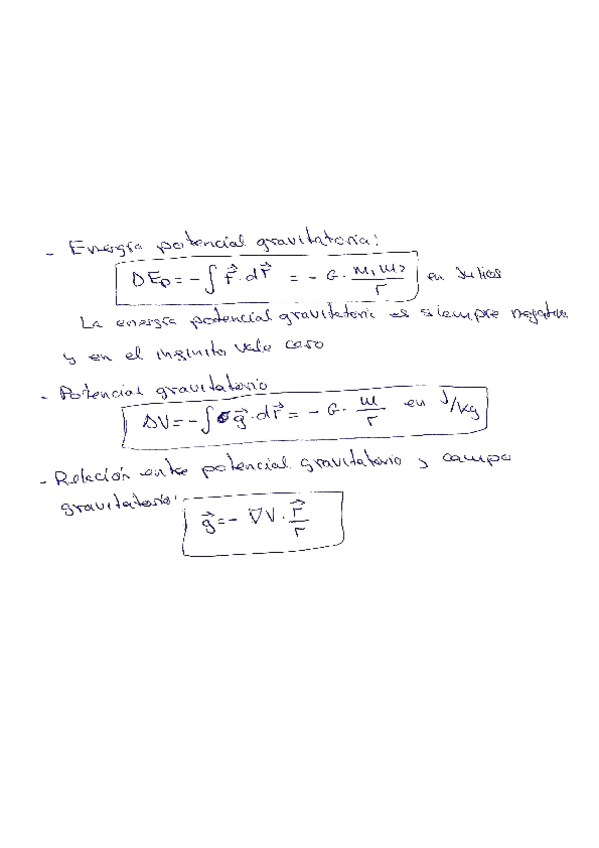 - Energía potencial gravitatoria:
ΔEp = - ∫ F⃗ · dr⃗ = - G · m₁ m₂ / r en Julios
La energía potencial gravitatoria es siempre negativa
y en el infinito vale cero
- Potencial gravitatorio
ΔV = - ∫ g⃗ · dr⃗ = - G · m / r en J/kg
- Relación entre potencial gravitatorio y campo
gravitatorio:
g⃗ = - ∇V · r⃗ / r